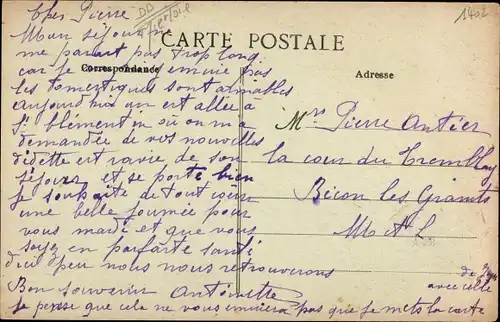 Cher Pierre
Mon séjour
CARTE POSTALE
me parait pas trop long
Correspondance
car je m'ennuie pas
les domestiques sont aimables
aujourd'hui on est allée à
St Clémentin où on m'a
demandée de vos nouvelles
didette est ravie de son
séjour et se porte bien
je souhaite de tout cœur
une belle journée pour
vous mardi et que vous
soyez en parfaite santé
d'ici peu nous nous retrouverons
Bon souvenir Antoinette
je pense que cela ne vous ennuiera pas que je mets la carte
avec celle
de
Adresse
Mr Pierre Antier
la cour du Tremblay
Bécon les Granits
M et L
1402